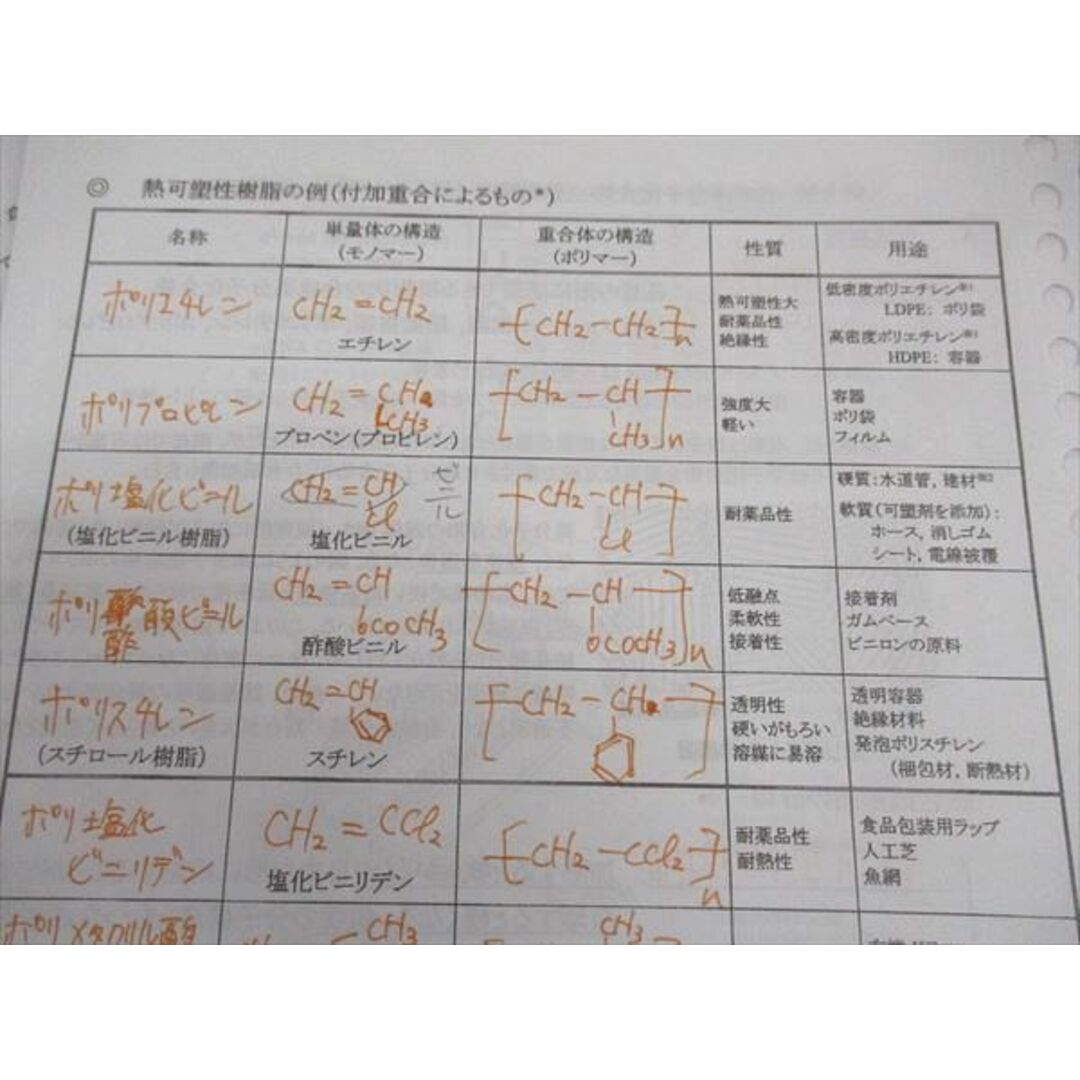 ◎ 熱可塑性樹脂の例(付加重合によるもの*)
名称
単量体の構造
(モノマー)
重合体の構造
(ポリマー)
性質
用途
ポリスチレン
CH2=CH2
エチレン
[CH2-CH2]n
熱可塑性大
耐薬品性
絶縁性
低密度ポリエチレン※1
LDPE: ポリ袋
高密度ポリエチレン※1
HDPE: 容器
ポリプロピレン
CH2=CH
CH3
プロペン(プロピレン)
[CH2-CH]n
CH3
強度大
軽い
容器
ポリ袋
フィルム
ポリ塩化ビニル
(塩化ビニル樹脂)
CH2=CH
Cl
ビニル
塩化ビニル
[CH2-CH]
Cl
耐薬品性
硬質:水道管, 建材※2
軟質(可塑剤を添加):
ホース, 消しゴム
シート, 電線被覆
ポリ酢酸ビニル
CH2=CH
OCOCH3
酢酸ビニル
[CH2-CH]n
OCOCH3
低融点
柔軟性
接着性
接着剤
ガムベース
ビニロンの原料
ポリスチレン
(スチロール樹脂)
CH2=CH
スチレン
[CH2-CH]n
透明性
硬いがもろい
溶媒に易溶
透明容器
絶縁材料
発泡ポリスチレン
(梱包材, 断熱材)
ポリ塩化
ビニリデン
CH2=CCl2
塩化ビニリデン
[CH2-CCl2]n
耐薬品性
耐熱性
食品包装用ラップ
人工芝
魚網
ポリメタクリル酸
CH3
CH3